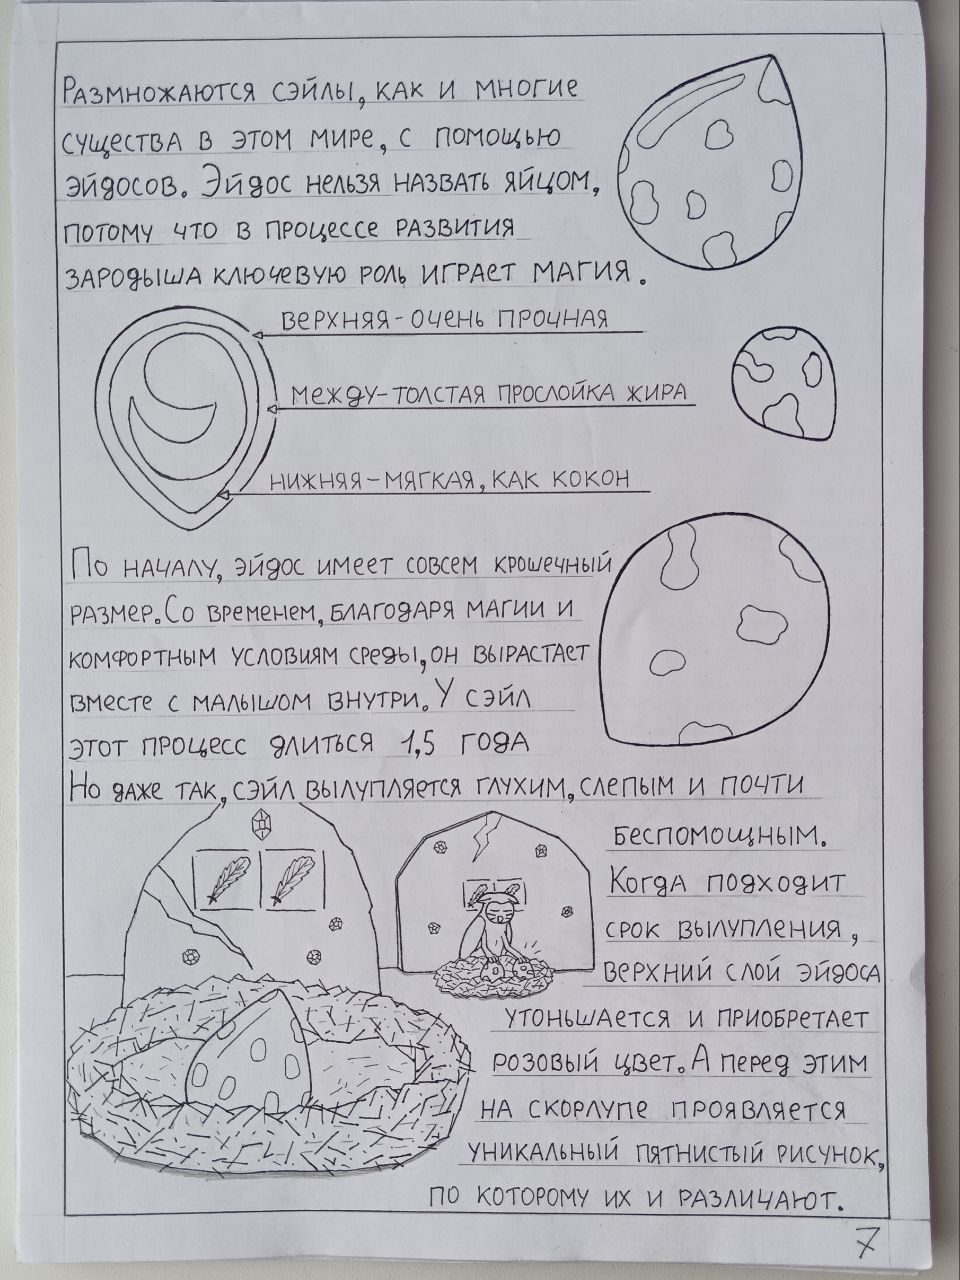 Размножаются сэйлы, как и многие
существа в этом мире, с помощью
эйдосов. Эйдос нельзя назвать яйцом,
потому что в процессе развития
зародыша ключевую роль играет магия.
верхняя-очень прочная
между-толстая прослойка жира
нижняя-мягкая, как кокон
По началу, эйдос имеет совсем крошечный
размер. Со временем, благодаря магии и
комфортным условиям среды, он вырастает
вместе с малышом внутри. У сэйл
этот процесс длиться 1,5 года
Но даже так, сэйл вылупляется глухим, слепым и почти
беспомощным.
Когда подходит
срок вылупления,
верхний слой эйдоса
утоньшается и приобретает
розовый цвет. А перед этим
на скорлупе проявляется
уникальный пятнистый рисунок,
по которому их и различают.
7